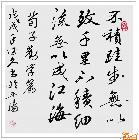 不積跬步無以
致千里不積細
流無以成江海
荀子勸學篇